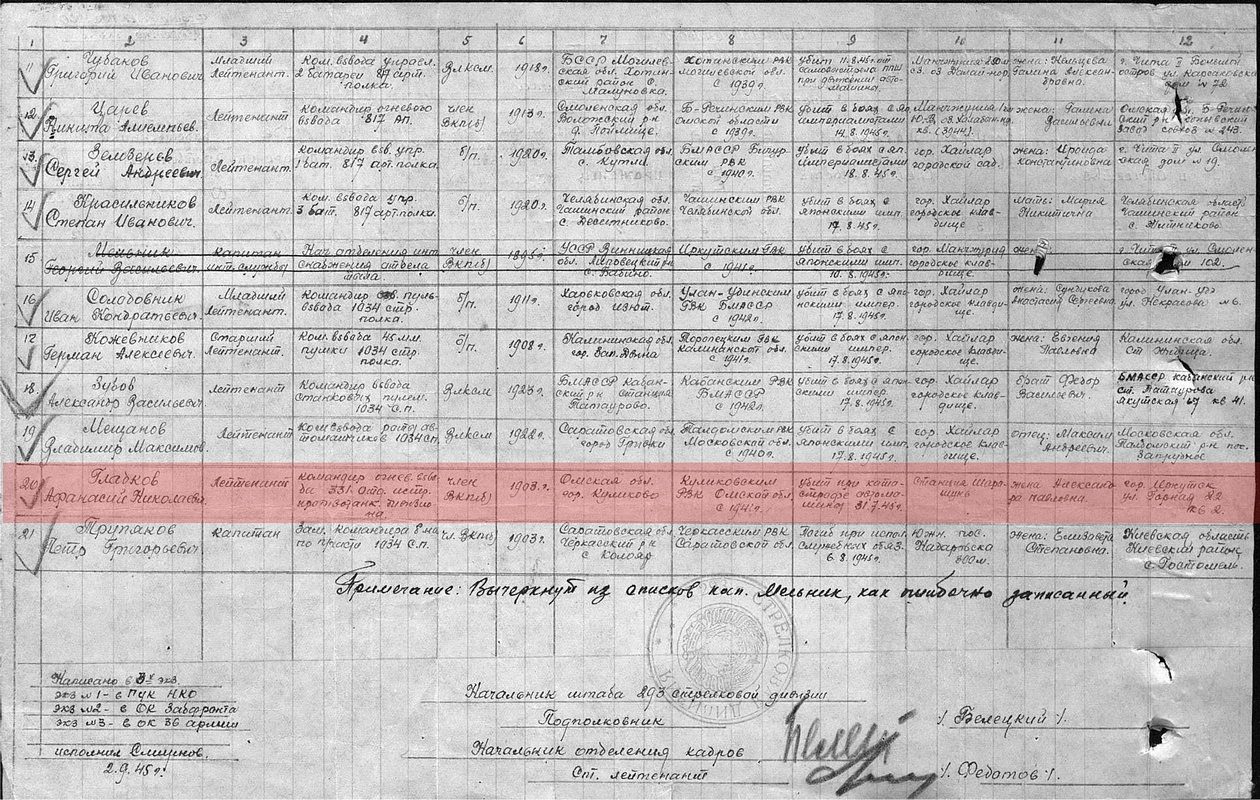 1 2 3 4 5 6 7 8 9 10 11 12
11 Чубаков Григорий Иванович Младший Лейтенант. Ком. взвода управл. 2 батареи 817 арт. полка. Влксм. 1918г. БССР Могилев-ская обл. Хотим-ский район с. Хотимским РВК Могилевской обл. с 1939г. убит 11.8.45г. от при движении авто-машины. жена: Галина Алексан-дровна. г. Чита II Большой остров ул. дом № 72
12 Царев Никита Амельев. Лейтенант. Командир огневого взвода 817 АП. член ВКП(б) 1913г. Смоленская обл. р-н д. Б-Реченским РВК Омской области с 1939г. Убит в боях с яп. империалистами 14.8.1945г. кв. (3944). жена: Галина Васильевна Омская обл. Б-Речен-ский р-н
13. Земзерев Сергей Андреевич. Лейтенант. командир взв. упр. 1 бат. 817 арт. полка. б/п. 1920г. с. Кутли. БМАССР Бичур-ским РВК с 1940г. Убит в боях с яп. империалистами 18.8.45г. гор. Хайлар городской сад. жена: Ироида Константиновна г. Чита II ул. Смолен-ская дом № 19.
14 Красильников Степан Иванович. Лейтенант. Ком. взвода упр. 3 бат. 817 арт. полка. б/п. 1920г. Челябинская обл. Чашинский район с. Чашинским РВК Челябинской обл. убит в боях с Японскими имп. 17.8.45г. гор. Хайлар городское клад-бище мать: Мария Никитична Челябинская область Чашинский район
15 Мельник Георгий Васильевич. капитан инт. службы Нач. отделения инт. снабжения отдела тыла член ВКП(б) 1895г. УССР Винницкая обл. Липовецкий р-н с. Бабино. Иркутским ГВК с 1941г. Убит в боях с Японскими имп. 10.8.1945г. гор. Манчжурия городское клад-бище. жена: г. Чита II ул. Смолен-ская 102.
16 Солодовник Иван Кондратьевич. Младший Лейтенант. Командир св. пуль-взвода 1034 стр. полка. б/п. 1911г. Харьковская обл. город Изюм. Улан-Удинским ГВК БМАССР с 1942г. Убит в боях с япо-нскими импер. 17.8.1945г. гор. Хайлар городское клад-бище. жена: Сундикова Анастасия Сергеевна. город Улан-Удэ ул. Некрасова № 6.
17 Кожевников Герман Алексеевич. Старший Лейтенант. Ком. взвода 45 мм. пушки 1034 стр. полка. б/п. 1908г. Калининская обл. гор. Зап. Двина Торопецким РВК Калининской обл. с 1941г. убит в боях с япон-скими импер. 17.8.1945г. гор. Хайлар городское клад-бище жена: Евгения Павловна Калининская обл. Ст. Жижица.
18 Зубов Александр Васильевич. Лейтенант Командир взвода станковых пулем. 1034 с.п. Влксм 1923г. БМАССР Кабан-ский р-н станция Татаурово. Кабанским РВК БМАССР с 1942г. Убит в боях с япон-скими импер. 17.8.1945г. гор. Хайлар городское клад-бище. брат Федор Васильевич. БМАССР Кабанский р-н ст. Татаурова Якутская 67 кв 41.
19 Мещанов Владимир Максимов. Лейтенант. Ком. взвода роты ав-томатчиков 1034 сп. Влксм 1922г. Саратовская обл. город Талдомским РВК Московской обл. с 1940г. Убит в боях с Японскими имп. 17.8.1945г. гор. Хайлар городское клад-бище. отец: Максим Андреевич. Московская обл. Талдомский р-н пос. Запрудное
20 Гладков Афанасий Николаев. Лейтенант командир огнев. взво-да 331 отд. истр. противотанк. дивизио-на. член ВКП(б) 1903г. Омская обл. гор. Куликово Куликовским РВК Омской обл. с 1941г. Убит при ката-строфе автома-шины 31.7.45г. Станция жена Александ-ра Павловна. гор. Иркутск ул. Горная 22 кв 2.
21 Трупанов Петр Григорьевич. капитан Зам. командира б-на по пр-сти 1034 с.п. чл. ВКП(б) 1903г. Саратовская обл. Черкасский р-н с. Колояр Черкасским РВК Саратовской обл. Погиб при испол. служебных обяз. 6.8.1945г. Южн. пос. 800м. жена: Елизавета Степановна. Киевская область Киевский район с. Гостомель.
Примечание: Вычеркнут из списков кап. Мельник, как ошибочно записанный.
Написано в 3х экз.
экз №1 - в ГУК НКО
экз №2 - в ОК Забфронта
экз №3 - в ОК 36 армии
исполнил Смирнов.
2.9.45г.
Начальник штаба 293 стрелковой дивизии
Подполковник /. Белецкий /.
Начальник отделения кадров
Ст. лейтенант /. Федотов /.